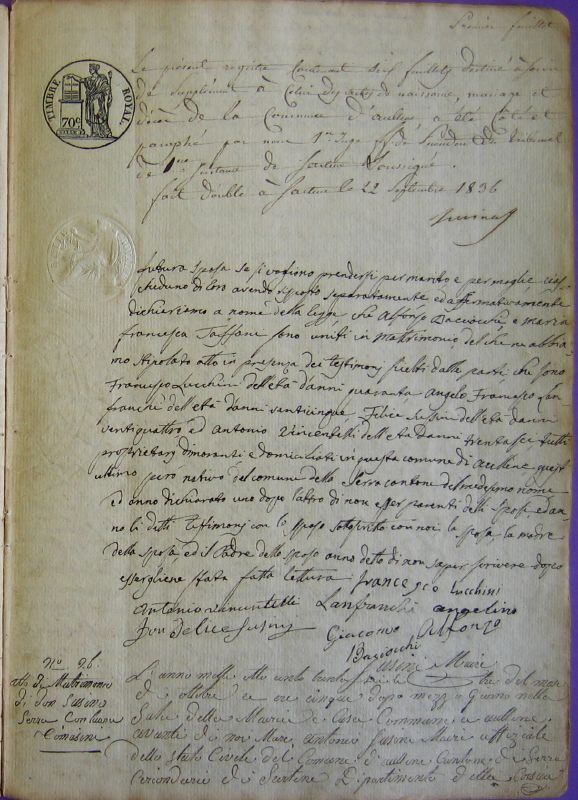 Premier feuillet
TIMBRE ROYAL
70c
Le présent registre Contenant six feuillets destiné à servir
de Supplément à Celui des actes de naissance, mariage et
décès de la Commune d'aullene, a été Coté et
paraphé par nous 1er Juge ff de President du Tribunal
de 1ere Instance de Sartene Soussigné.
fait double à Sartene le 22 Septembre 1836
futura sposa se si vogliono prendersi per marito e per moglie cias-
cheduno di loro avendo risposto separatamente ed affermativamente
dichiariamo a nome della legge, che Alfonso Baciocchi e maria
francesca Taffani sono uniti in matrimonio del che ne abbia-
mo stipolato atto in presenza dei testimonj scielti dalle parti che sono
Francesco Lucchini dell'età d'anni quaranta Angelo Francesco Lan-
franchi dell'età d'anni venticinque Felice Susini dell'età d'anni
ventiquattro ed Antonio Vincentelli dell'età d'anni trentasei tutti
proprietarj dimoranti e domiciliati in questa comune di Aullene quest'
ultimo però nativo del comune della Serra cantone del medesimo nome
ed anno dichiarato uno dopo l'altro di non esser parenti delli sposi ed an-
no li detti testimonj con lo sposo sotoscritto con noi la sposa, la madre
della sposa, ed il Padre dello sposo anno detto di non saper scrivere dopo
essergliene stata fatta lettura francesco Lucchini
Antonio vincentelli Lanfranchi angelino
Don felice susinj Giacomo Alfonzo
Baciocchi
Susini Maire
No. 26.
atto di Matrimonio
di don Susino
Serra Con lucia
Comasine
L'anno mille otto cento trenta sei li tre del mese
di ottobre ed ore cinque dopo mezzo Giorno nella
Sala della Mairia di Casa Commune d'aullene
avanti di noi Marc antonio Susini Maire uffiziale
dello stato Civile del Comune d'aullene Cantone di Serra
Circondario di Sartene Dipartimento della Corsica